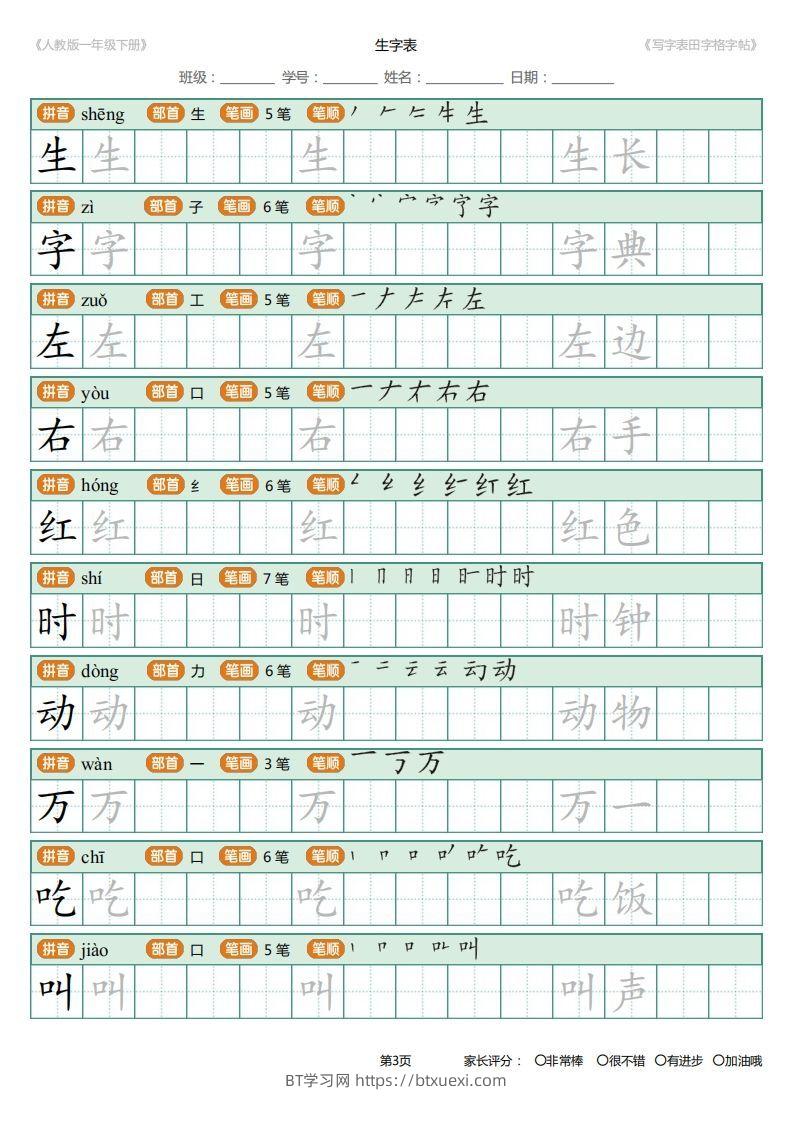 《人教版一年级下册》 生字表 《写字表田字格字帖》
班级：________ 学号：________ 姓名：____________ 日期：_________
拼音 shēng 部首 生 笔画 5 笔 笔顺 丿 𠂉 生
生 生 生 生 长
拼音 zì 部首 子 笔画 6 笔 笔顺 丶 宀 字
字 字 字 字 典
拼音 zuǒ 部首 工 笔画 5 笔 笔顺 一 𠂇 左
左 左 左 左 边
拼音 yòu 部首 口 笔画 5 笔 笔顺 一 𠂇 右 右
右 右 右 右 手
拼音 hóng 部首 纟 笔画 6 笔 笔顺 纟 红
红 红 红 红 色
拼音 shí 部首 日 笔画 7 笔 笔顺 丨 冂 日 时 时
时 时 时 时 钟
拼音 dòng 部首 力 笔画 6 笔 笔顺 一 二 云 云 动
动 动 动 动 物
拼音 wàn 部首 一 笔画 3 笔 笔顺 一 丆 万
万 万 万 万 一
拼音 chī 部首 口 笔画 6 笔 笔顺 丨 口 吃
吃 吃 吃 吃 饭
拼音 jiào 部首 口 笔画 5 笔 笔顺 丨 口 叫
叫 叫 叫 叫 声
第3页 家长评分： 〇非常棒 〇很不错 〇有进步 〇加油哦
BT学习网 https://btxuexi.com